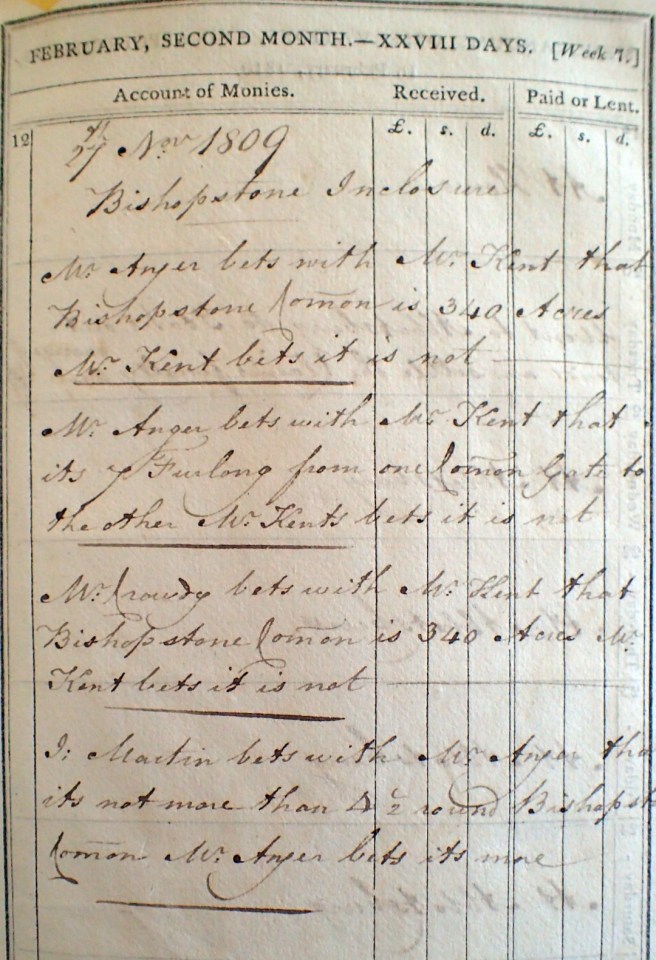 FEBRUARY, SECOND MONTH.—XXVIII DAYS. [Week 7.]
Account of Monies. Received. Paid or Lent.
£. s. d. £. s. d.
12 27th Novr 1809
Bishopstone Inclosure
Mr. Anger bets with Mr. Kent that
Bishopstone Com̄on is 340 Acres
Mr. Kent bets it is not
Mr. Anger bets with Mr. Kent that
its 7 Furlong from one Com̄on Gate to
the other Mr. Kents bets it is not
Mr. Crowdy bets with Mr. Kent that
Bishopstone Com̄on is 340 Acres Mr.
Kent bets it is not
J: Martin bets with Mr. Anger tha
its not more than 1 ½ round Bishopst
Com̄on Mr. Anger bets its more